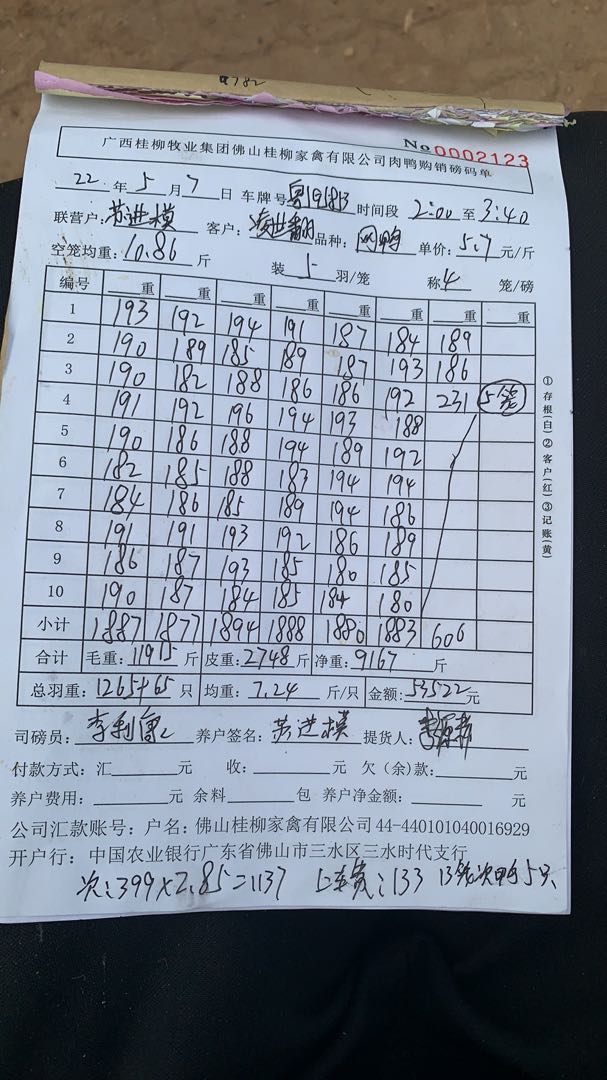 No 0002123
广西桂柳牧业集团佛山桂柳家禽有限公司肉鸭购销磅码单
22 年 5 月 7 日 车牌号 时间段 2:00 至 3:40
联营户: 苏进模 客户: 品种: 网鸭 单价: 5.7 元/斤
空笼均重: 10.86 斤 装 5 羽/笼 称 4 笼/磅
编号 重 重 重 重 重 重 重 重
1 193 192 194 191 187 184 189
2 190 189 185 189 187 193 186
3 190 182 188 186 186 192 231 5笼
4 191 192 196 194 193 188
5 190 186 188 194 189 192
6 182 185 188 183 194 194
7 184 186 185 189 194 186
8 191 191 193 192 186 189
9 186 187 193 185 180 185
10 190 187 184 185 184 180
小计 1887 1877 1894 1888 1880 1883 606
合计 毛重: 11915 斤 皮重: 2748 斤 净重: 9167 斤
总羽重: 1265+65 只 均重: 7.24 斤/只 金额: 53522 元
司磅员: 养户签名: 苏进模 提货人:
付款方式: 汇 元 收: 元 欠(余)款: 元
养户费用: 元 余料 包 养户净金额: 元
公司汇款账号: 户名: 佛山桂柳家禽有限公司 44-440101040016929
开户行: 中国农业银行广东省佛山市三水区三水时代支行
次: 399×2.85=1137 上车费: 133 13笼次鸭5只
①存根(白)②客户(红)③记账(黄)